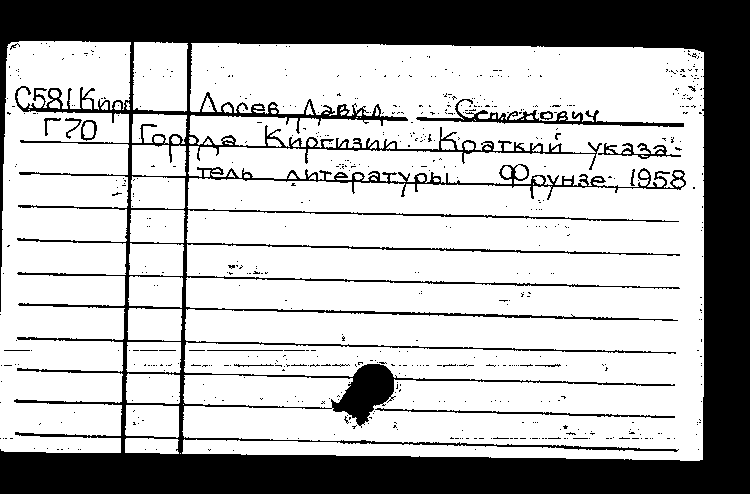 С581Кирг Лосев, Давид Семенович
Г70 Города Киргизии. Краткий указа-
тель литературы. Фрунзе, 1958.